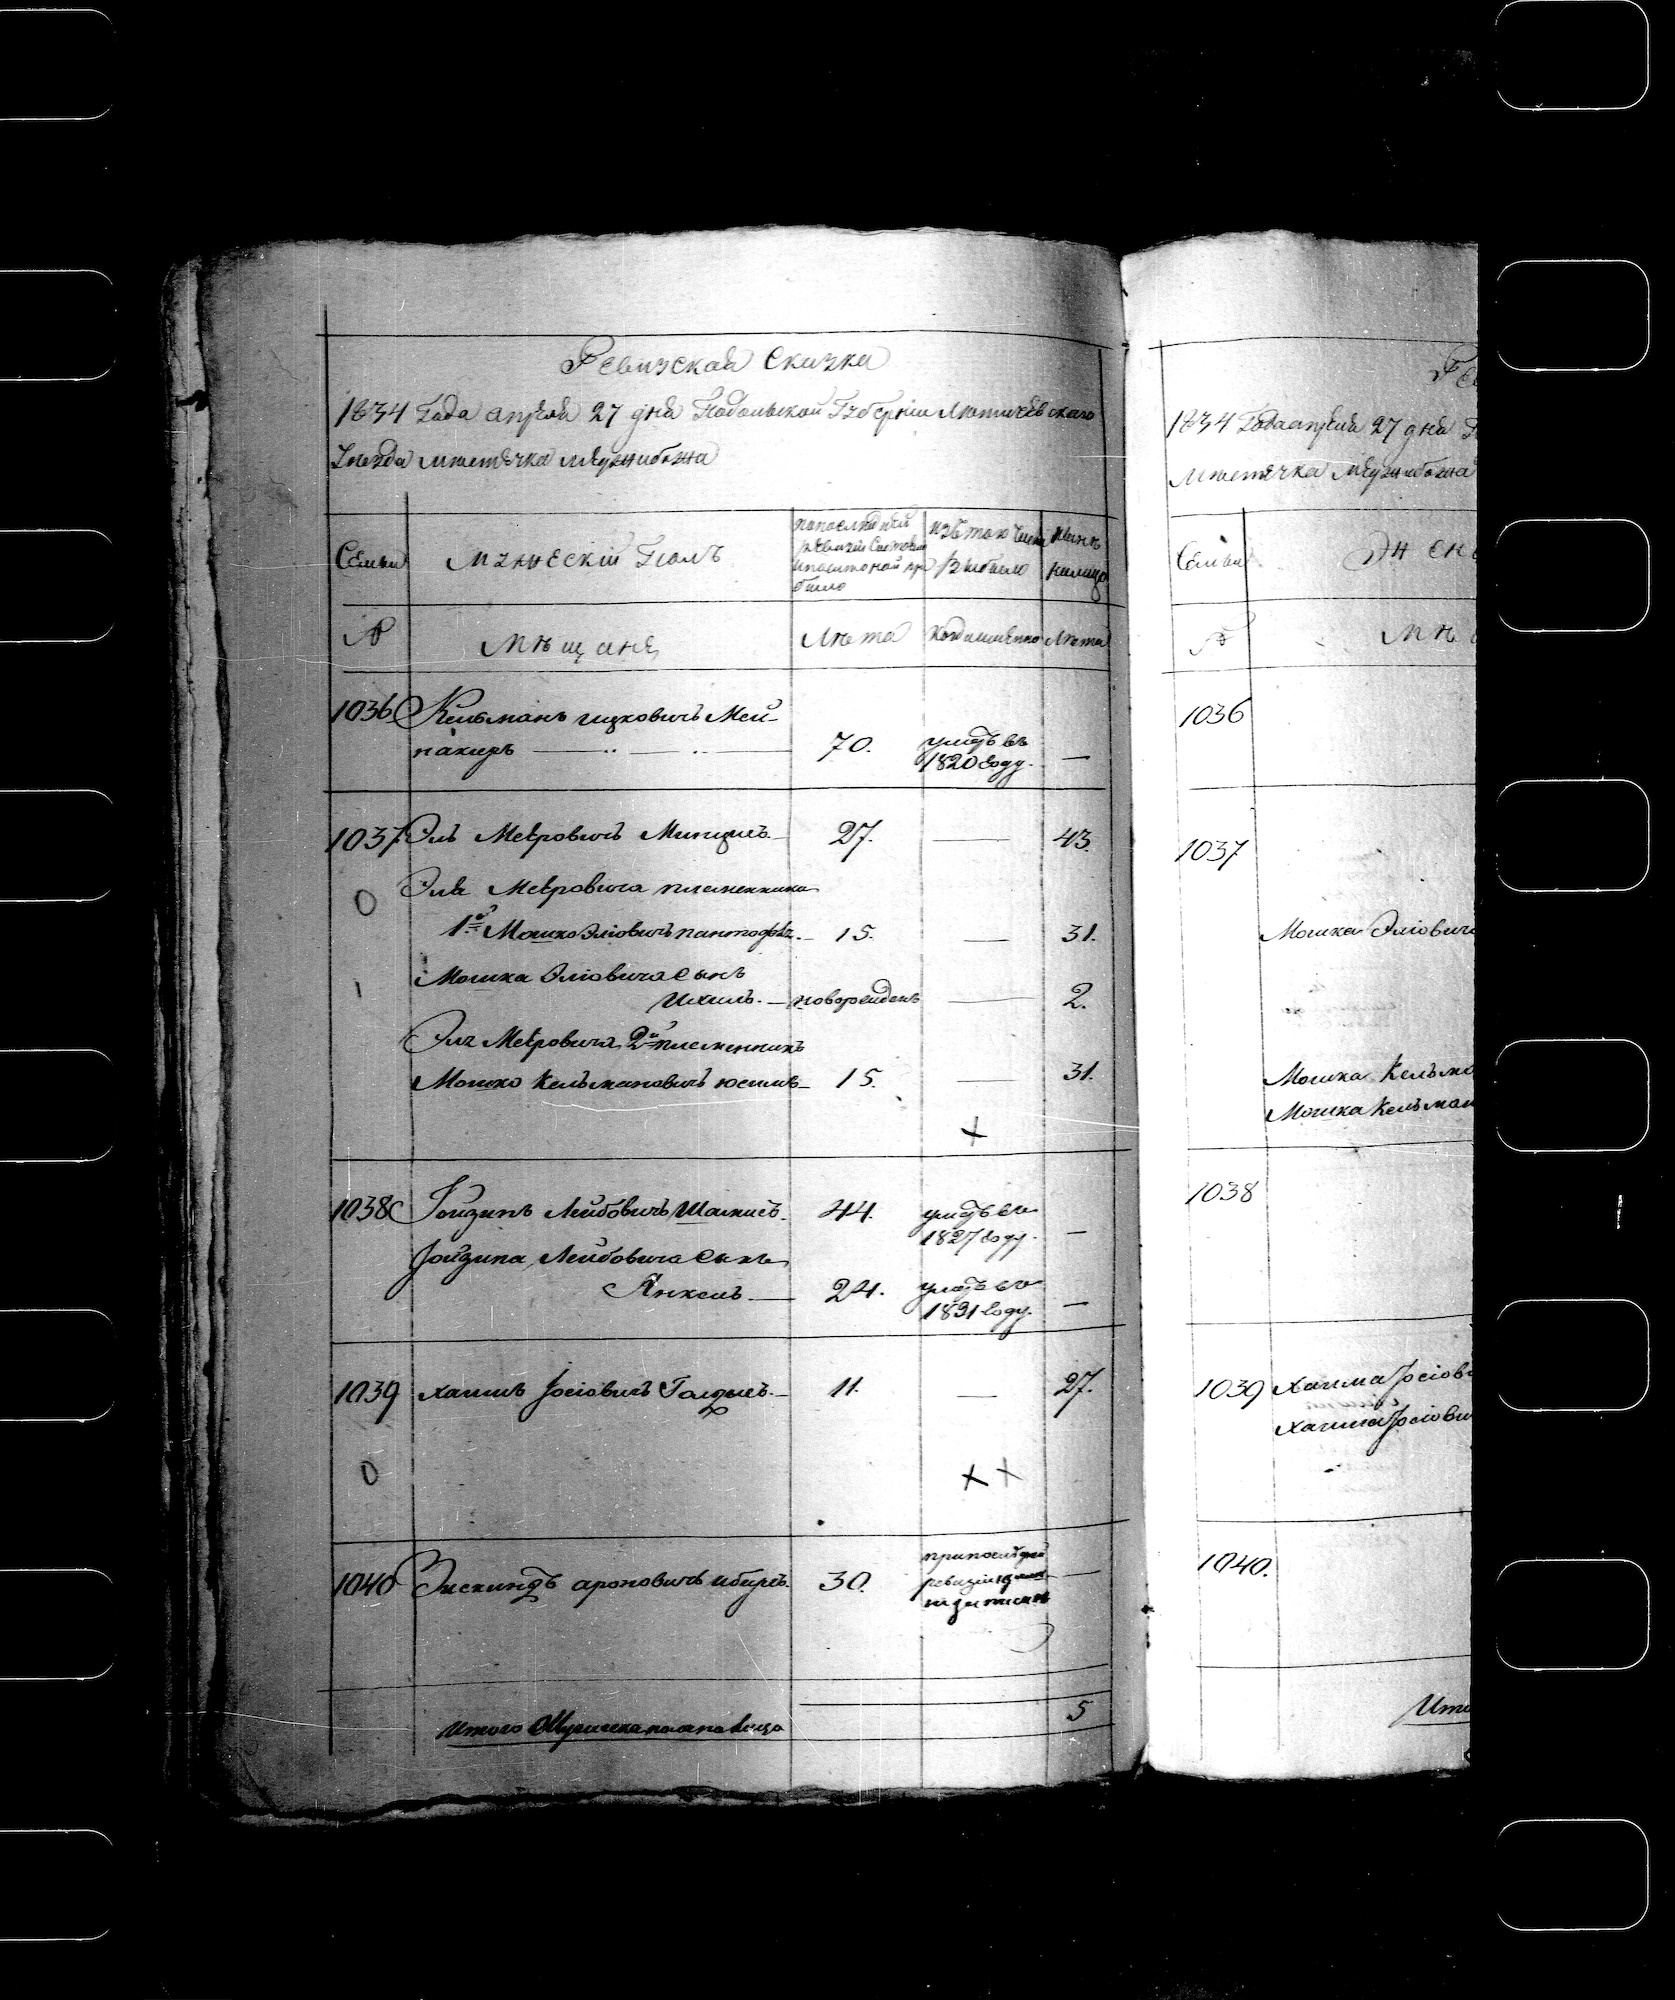 Ревизская Сказка
1834 Года апреля 27 дня Подольской Губернии Лютичевскаго
Уезда местечка Меджибожа
Семьи
Мужескій Полъ
по последней ревизіи Состояло и после тоной прибыло
Изъ того числа выбыло
Ныне на лицо
№
Мѣщане
Лѣта
Когда именно
Лѣта
1036 Кельманъ Ицковичъ Мей-
накеръ 70. умеръ въ
1820 году. —
1037 Эль Меєровичъ Минцисъ 27. — 43.
0
Эля Меєровича племенники
1й Мошко Эліовичъ пантофель 15. — 31.
Мошка Эліовича сынъ
Ихиль. — новорожденъ — 2.
Эля Меєровича 2й племенникъ
Мошко Кельмановичъ 15. — 31.
+
1038 Лейбовичъ 44. умеръ въ
1827 году. —
Лейбовича сынъ
Янкель 24. умеръ въ
1831 году. —
1039 Хаимъ Іосіовичъ 11. — 27.
0
+ +
1040 Зискиндъ Ароновичъ 30. при последней
ревизіи
—
Итого Мужеска пола на лицо 5
1834 Года апреля 27 дня
Местечка Меджибожа
Семьи
№
1036
1037
Мошка Эліовича
Мошка Кельма
Мошка Кельман
1038
1039 Хаима Іосіови
Хаима Іосіови
1040.
Ито